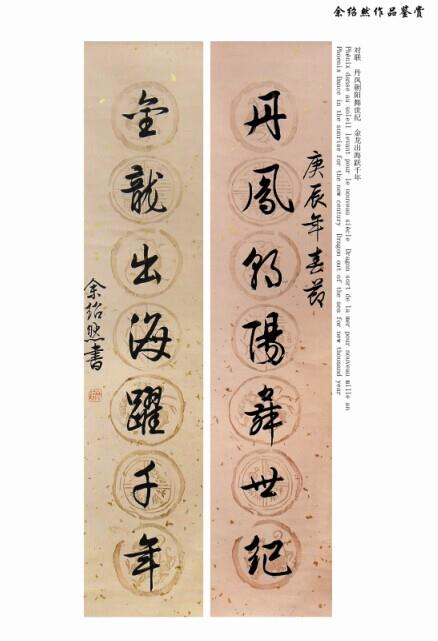 余绍然作品鉴赏
对联 丹凤朝阳舞世纪 金龙出海跃千年
Phénix danse au soleil levant pour le nouveau siècle Dragon sort de la mer pour nouveau mille an
Phoenix Dance in the sunrise for the new century Dragon out of the sea for new thousand year
庚辰年春节
丹鳳朝陽舞世紀
金龍出海躍千年
余紹然書